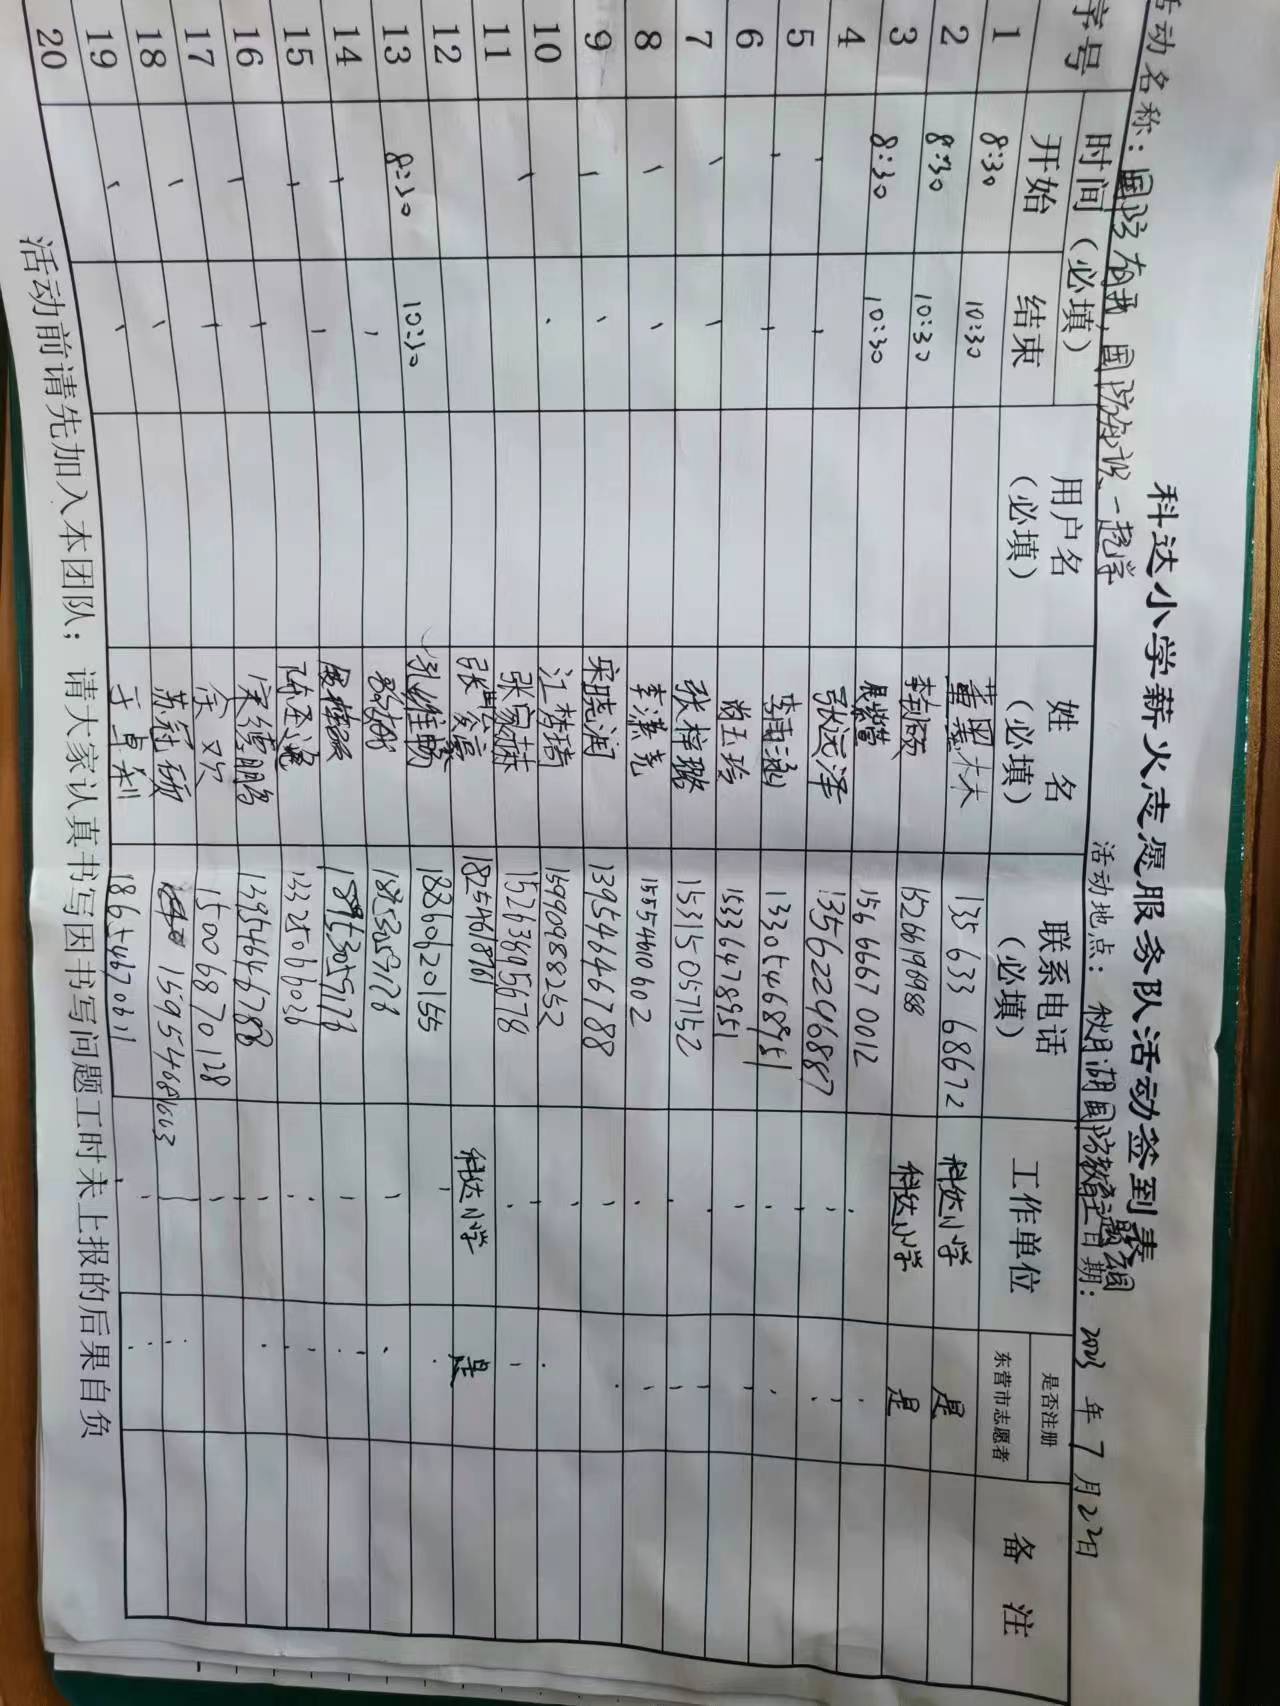 科达小学薪火志愿服务队活动签到表
活动名称：国防有我，国防知识一起学 活动地点：秋月湖国防教育主题公园 日期：2023年7月22日
序号 时间（必填） 用户名（必填） 姓名（必填） 联系电话（必填） 工作单位 是否注册东营市志愿者 备注
开始 结束
1 8:30 10:30 黄墨林 135633 68672 科达小学 是
2 8:30 10:30 15266196988 科达小学 是
3 8:30 10:30 156 6667 0012
4 张远泽 13562296887
5 李雨涵 13305468951
6 尚玉珍 15336478951
7 张梓璐 15315057152
8 李潇尧 15554610602
9 宋晓润 13954646788
10 江梓琦 15990988252
11 张家赫 15263895678
12 张 18254618761 科达小学 是
13 8:30 10:30 孔维畅 1860620155
14 18953059178
15 陈丕 13325066036
16 宋德鹏 13954646788
17 余欢 15006870128
18 苏冠硕 15954681663
19 于卓 18654670611
20
活动前请先加入本团队；请大家认真书写因书写问题工时未上报的后果自负